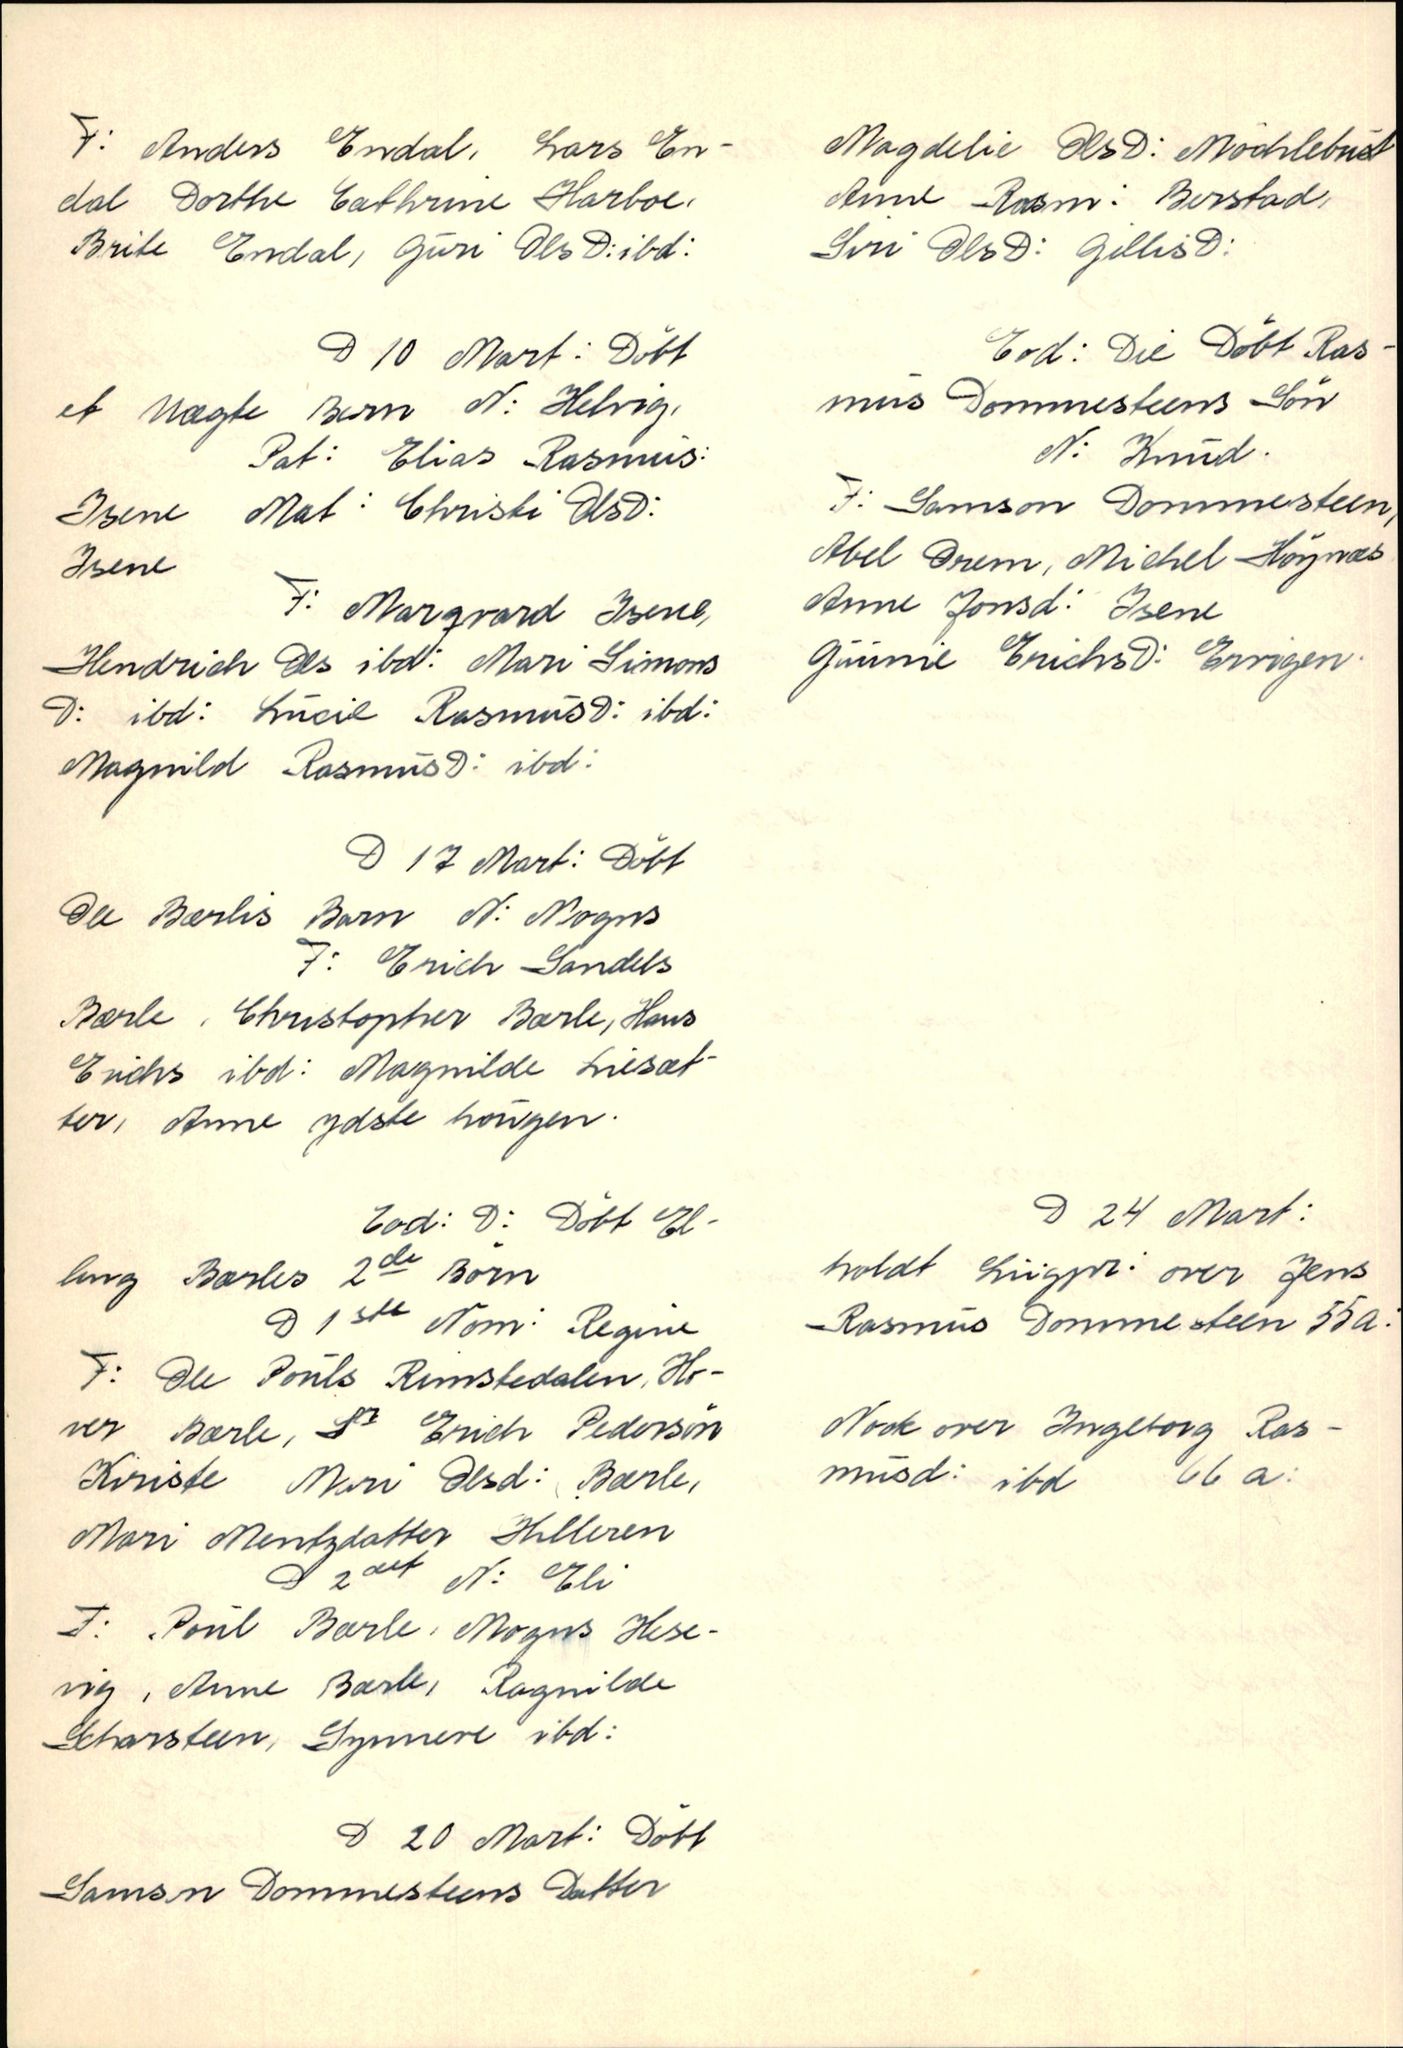 F: Anders Endal, Lars En-
dal Dorthe Cathrine Harboe,
Brite Endal, Gŭri OlsD: ibd:
D 10 Mart: Döbt
et Uægte Barn N: Helvig,
Pat: Elias Rasmŭs:
Isene Mat: Christi OlsD:
Isene
F: Marqvard Isene,
Hendrich Ols ibd: Mari Simons
D: ibd: Lŭcie RasmŭsD: ibd:
Magnild RasmŭsD: ibd:
D 17 Mart: Döbt
Ole Bærlis Barn N: Mogns
F: Erich Sandels
Bærle, Christopher Bærle, Hans
Erichs ibd: Magnilde Liesæt-
ter, Anne ydste hoŭgen.
Eod: D: Döbt El-
ling Bærles 2de Börn
D 1ste Nom: Regine
F: Ole Poŭls Rimstedalen, Ho-
ver Bærle, Sr Erich Pedersön
Kiriste Mari Olsd: Bærle,
Mari Mentzdatter Hilleren
D 2det N: Eli
F: Poŭl Bærle, Mogns Hese-
vig, Anne Bærle, Ragnilde
Scharsteen, Synneve ibd:
D 20 Mart: Döbt
Samson Dommesteens Datter
Magdelie OlsD: Möchlebŭst
Anne Rasm: Berstad,
Siri OlsD: GillisD:
Eod: Die Döbt Ras-
mŭs Dommesteens Sön
N: Knŭd.
F: Samson Dommesteen,
Abel Drem, Michel Höynæs
Anne Jonsd: Isene
Gŭŭnie ErichsD: Ervigen.
D 24 Mart:
holdt Liigpr: over Jens
Rasmŭs Dommesteen 55 a:
Nock over Ingeborg Ras-
mŭsd: ibd 66 a: